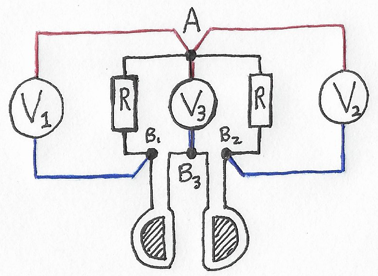 A
V₁
R
V₃
R
V₂
B₁
B₂
B₃